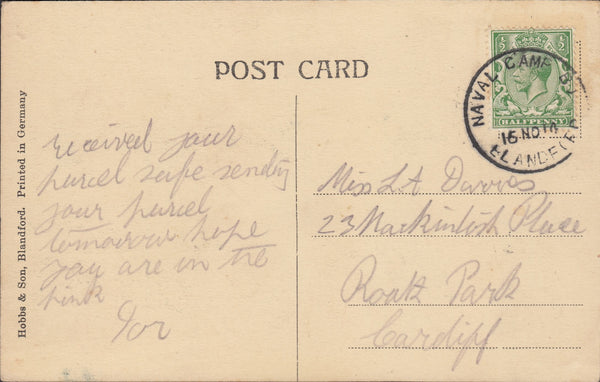 POST CARD
Hobbs & Son, Blandford. Printed in Germany
HALFPENNY
NAVAL CAMP B
16 NO 1
BLANDFOR
received your
parcel safe sending
your parcel
tomorrow hope
you are in the
pink
Miss L A Davies
23 Mackintosh Place
Roath Park
Cardiff